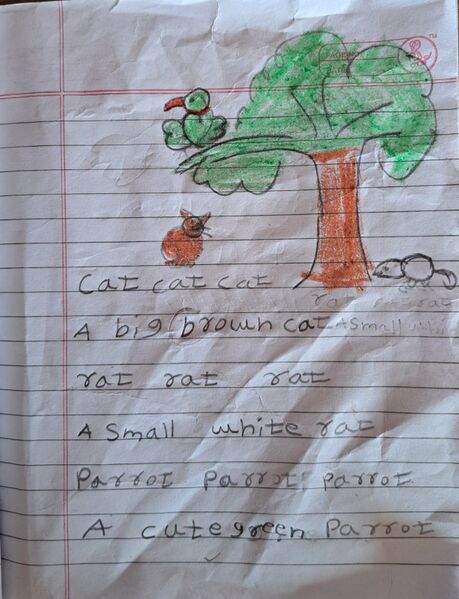 PAGE NO.
DATE
Cat cat cat
rat rat rat
A big brown cat A small whi
rat rat rat
A small white rat
Parrot Parrot parrot
A cute green Parrot